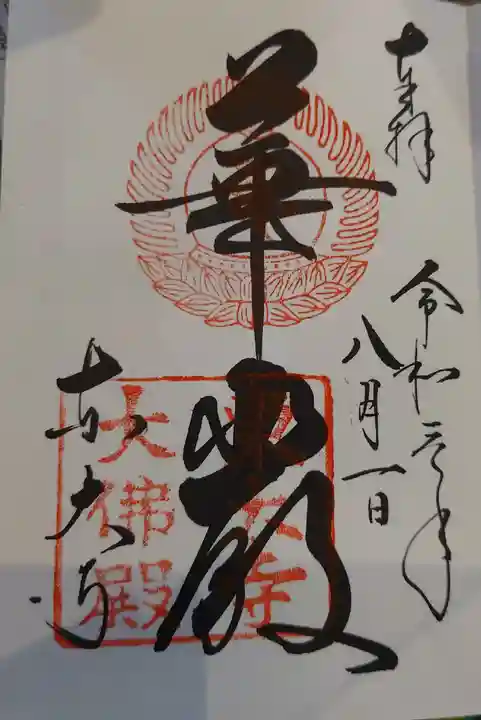 奉拝
令和元年
八月一日
華嚴
東大寺
東大寺
大佛殿